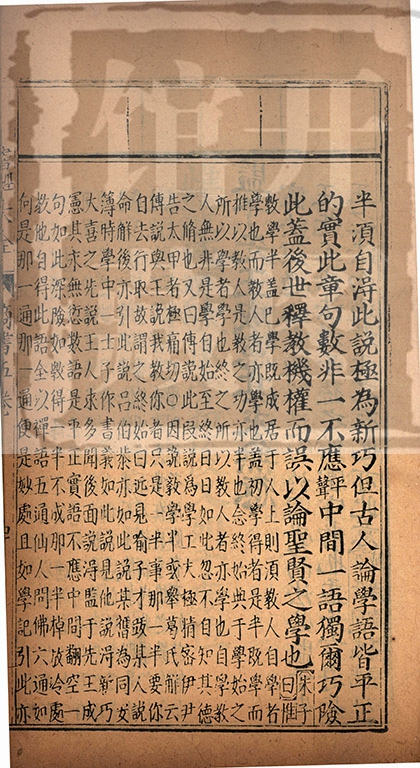 半須自得此說極為新巧但古人論學語皆平正
的實此章句數非一不應中間一語獨爾巧險
此蓋後世釋教機權而誤以論聖賢之學也 朱子曰惟
斆學半蓋已學既成居于人上則須教人自學者
學也而教人者亦學也蓋初學得者是半既學而
推以教人是教人之功亦半也念終始典于學始之
所以學者學也終之所以教人者亦學也自學教
人無非是學自始至終日日如此忽不自知其德
之脩也又曰傅說此段說為學工夫極精密伊尹
告太甲者極痛切○因說斆學半或舉葛氏解云
傅說與王說我教你者只是一半事那一半要你
自去行取故謂之終始曰近見俞子才跋某人說
命解後亦引此說呂伯恭亦如此說某舊為同安
簿時學中一士子作書義如此說某見它說得新巧
大喜之先說王人求多聞後面說得監于先王成
憲其永無愆數語是平正實語不應中間翻空一
句如此深險如斆得一半不成那一半掉放冷處
教他自得此語全似禪語五通仙人問佛六通如
何是那一通那一通便是妙處且如學記引此亦
商書五卷